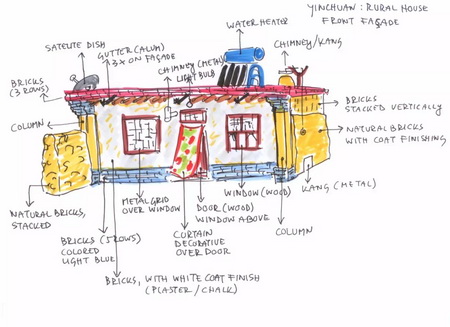 YINCHUAN: RURAL HOUSE
FRONT FAÇADE
WATER HEATER
SATELITE DISH
GUTTER (ALUM)
3x ON FAÇADE
CHIMNEY (METAL)
LIGHT BULB
CHIMNEY/KANG
BRICKS
(3 ROWS)
COLUMN
BRICKS
STACKED VERTICALLY
NATURAL BRICKS
WITH COAT FINISHING
NATURAL BRICKS,
STACKED
METAL GRID
OVER WINDOW
WINDOW (WOOD)
KANG (METAL)
DOOR (WOOD)
WINDOW ABOVE
COLUMN
BRICKS (5 ROWS)
COLORED
LIGHT BLUE
CURTAIN
DECORATIVE
OVER DOOR
BRICKS, WITH WHITE COAT FINISH
(PLASTER/CHALK)